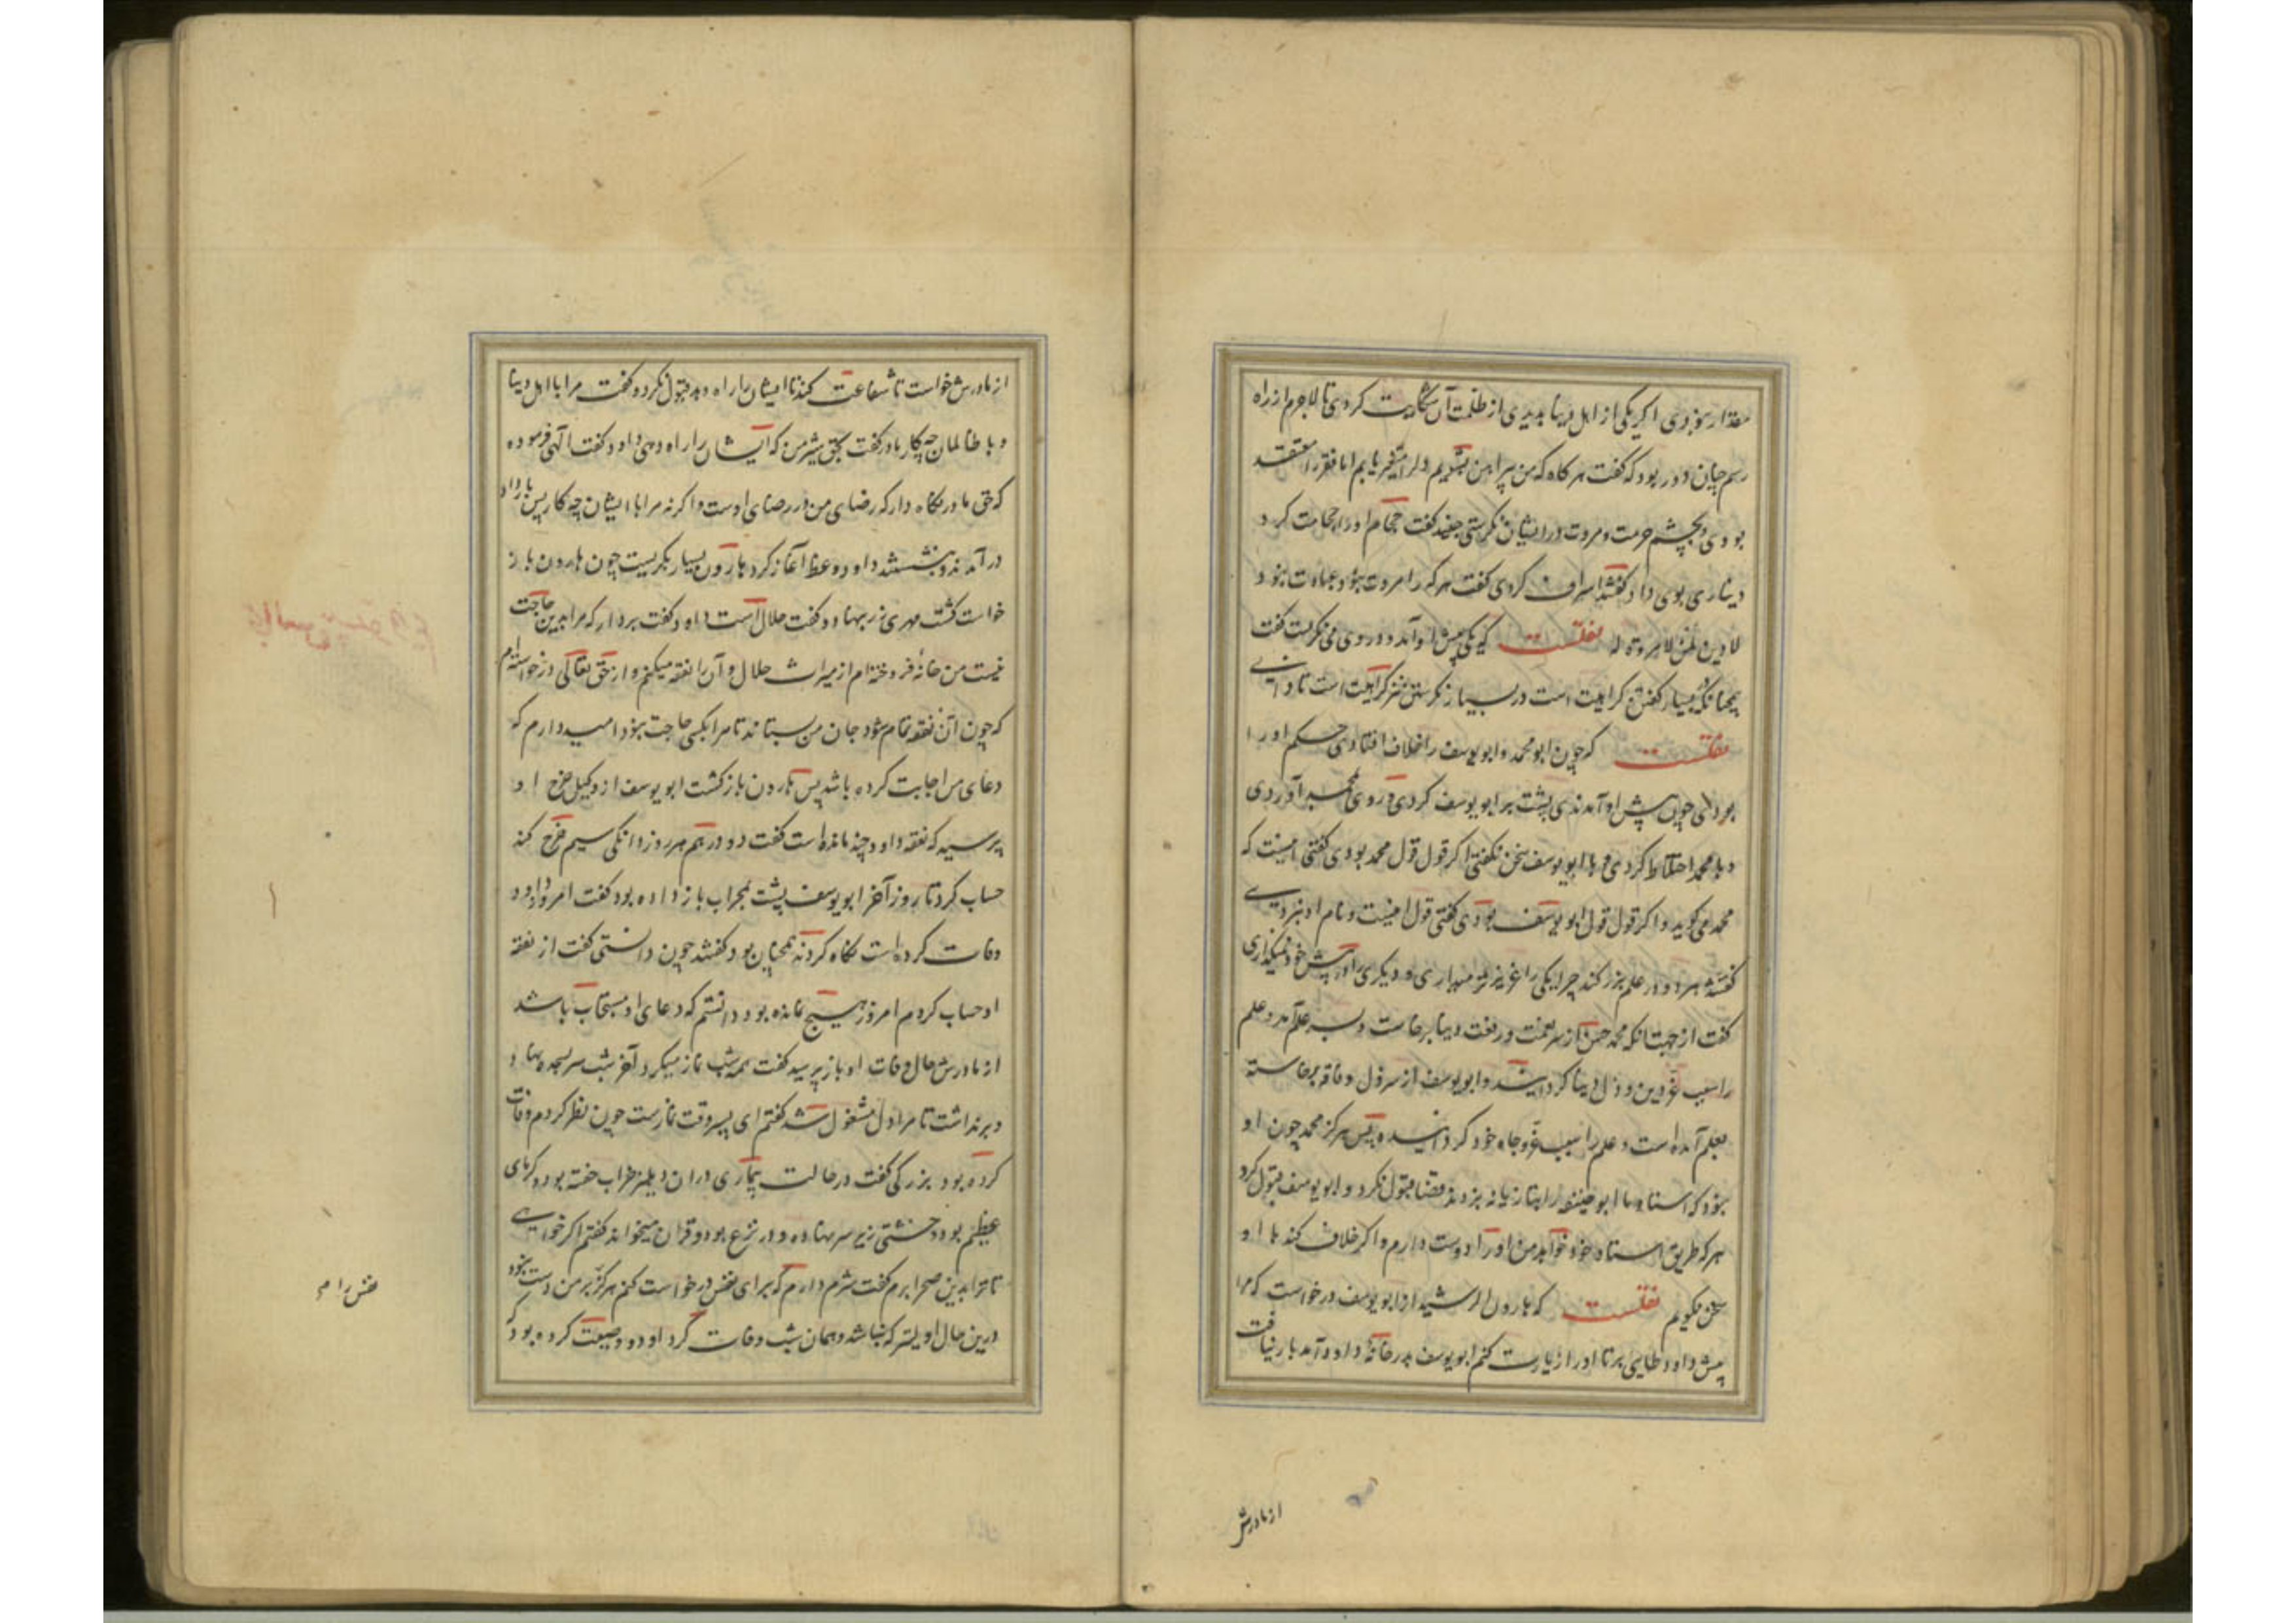 مقدار نبودی اگر یکی از اهل دنیا بدیدی از ظلمت آن شکایت کردی تا لاجرم از راه
رسم چنان دور بود که گفت هرگاه که من پیراهن بشویم دل را متغیر یابم اما فقرا را معتقد
بودی و بچشم حرمت و مروت در ایشان نگرستی جنید گفت حجام او را حجامت کرد
دیناری بوی داد گفتند اسراف کردی گفت هر که را مروت نبود عبادت نبود
لا دین لمن لا مروة له نقلست که یکی پیش او آمد و در وی می نگریست گفت
همچنانکه بسیار گفتن کراهیت است در بسیار نگرستن نیز کراهیت است تا دانی
نقلست که چون ابو محمد و ابو یوسف را خلاف افتادی حکم او را
بودی چون پیش او آمدندی پشت بر ابو یوسف کردی و روی بمحمد آوردی
و با محمد اختلاط کردی و با ابو یوسف سخن نگفتی اگر قول قول محمد بودی گفتی اینست که
محمد می گوید و اگر قول قول ابو یوسف بودی گفتی قول اینست و نام او نبردی
گفتند هر دو در علم بزرگند چرا یکی را عزیز میداری و دیگری را در پیش خود نمیگذاری
گفت از جهت آنکه محمد حسن از سر نعمت و رفعت دنیا برخاست و بسر علم آمد و علم
را سبب عز دین و ذل دنیا گردانید و ابو یوسف از سر ذل و فاقه برخاسته
بعلم آمده است و علم را سبب عز و جاه خود گردانیده پس هرگز محمد چون او
نبود که استاد ما ابو حنیفه را بتازیانه بزدند قضا قبول نکرد و ابو یوسف قبول کرد
هر که طریق استاد خود خواهد من او را دوست دارم و اگر خلاف کند با او
سخن نگویم نقلست که هارون الرشید از ابو یوسف درخواست که مرا
پیش داود طایی بر تا او را زیارت کنم ابو یوسف بدر خانه داود آمد بار نیافت
از مادرش
از مادرش خواست تا شفاعت کند تا ایشان را راه دهد قبول نکرد و گفت مرا با اهل دنیا
و با ظالمان چه کار مادر گفت بحق شیر من که ایشان را راه دهی داود گفت الهی فرموده
که حق مادر نگاه دار که رضای من در رضای اوست و اگر نه مرا با ایشان چه کار پس بار داد
در آمدند و بنشستند داود وعظ آغاز کرد هارون بسیار بگریست چون هارون باز
خواست گشت مهری زر بنهاد و گفت حلال است داود گفت بردار که مرا بدین حاجت
نیست من خانه فروخته ام از میراث حلال و آن را نفقه میکنم و از حق تعالی درخواسته ام
که چون آن نفقه تمام شود جان من بستاند تا مرا بکسی حاجت نبود امید دارم که
دعای مرا اجابت کرده باشد پس هارون باز گشت ابو یوسف از وکیل خرج او
پرسید که نفقه داود چند مانده است گفت دو درهم هر روز دانگی سیم خرج کند
حساب کرد تا روز آخر ابو یوسف پشت بمحراب باز داده بود گفت امروز داود
وفات کرده است نگاه کردند همچنان بود گفتند چون دانستی گفت از نفقه
او حساب کردم امروز هیچ نمانده بود دانستم که دعای او مستجاب باشد
از مادرش حال وفات او باز پرسید گفت همه شب نماز میکرد آخر شب سر بسجده نهاد و
بر نداشت تا مرا دل مشغول شد گفتم ای پسر وقت نمازست چون نظر کردم وفات
کرده بود بزرگی گفت در حالت بیماری در آن دهلیز خراب خفته بود و گرمای
عظیم بود و خشتی زیر سر نهاده و در نزع بود و قرآن میخواند گفتم اگر خواهی
تا ترا بدین صحرا برم گفت شرم دارم که برای نفس درخواست کنم هرگز نفس بر من دست نبود
درین حال اولیتر که نباشد و همان شب وفات کرد داود وصیت کرده بود که
نفس را